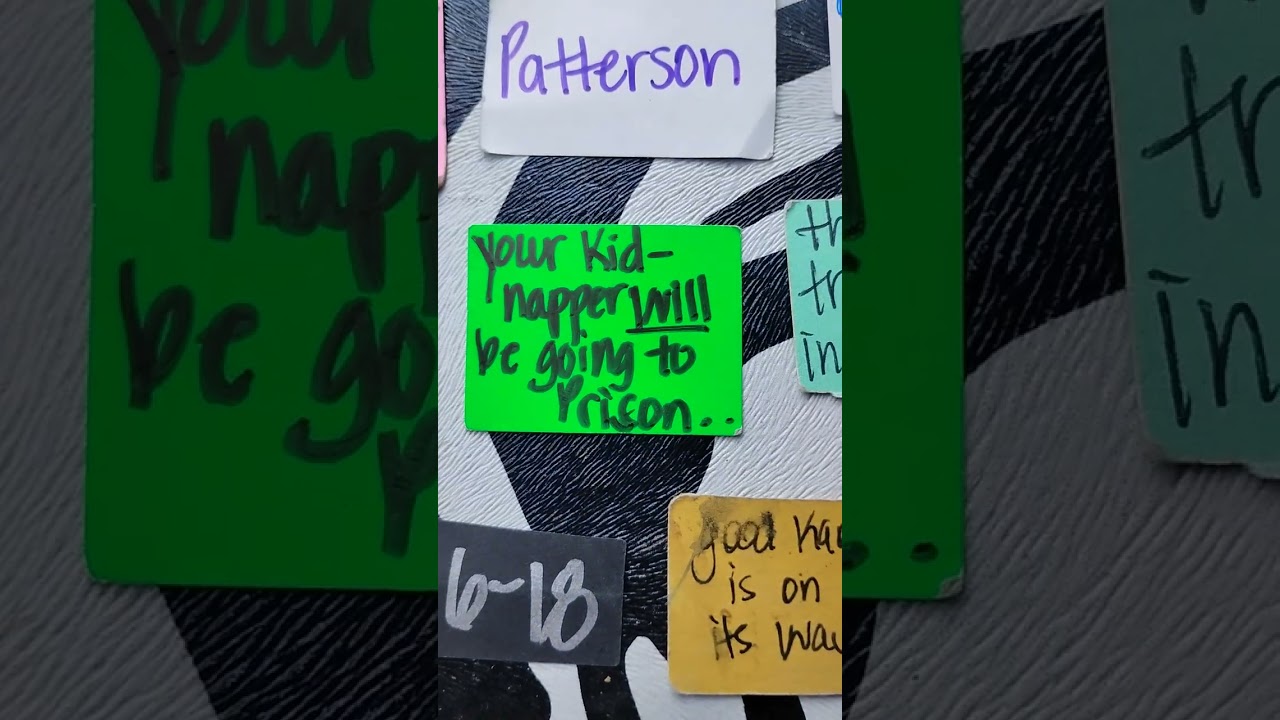 Patterson
your Kid-
napper will
be going to
Prison..
th
tr
in
6-18
good Ka
is on
its wa